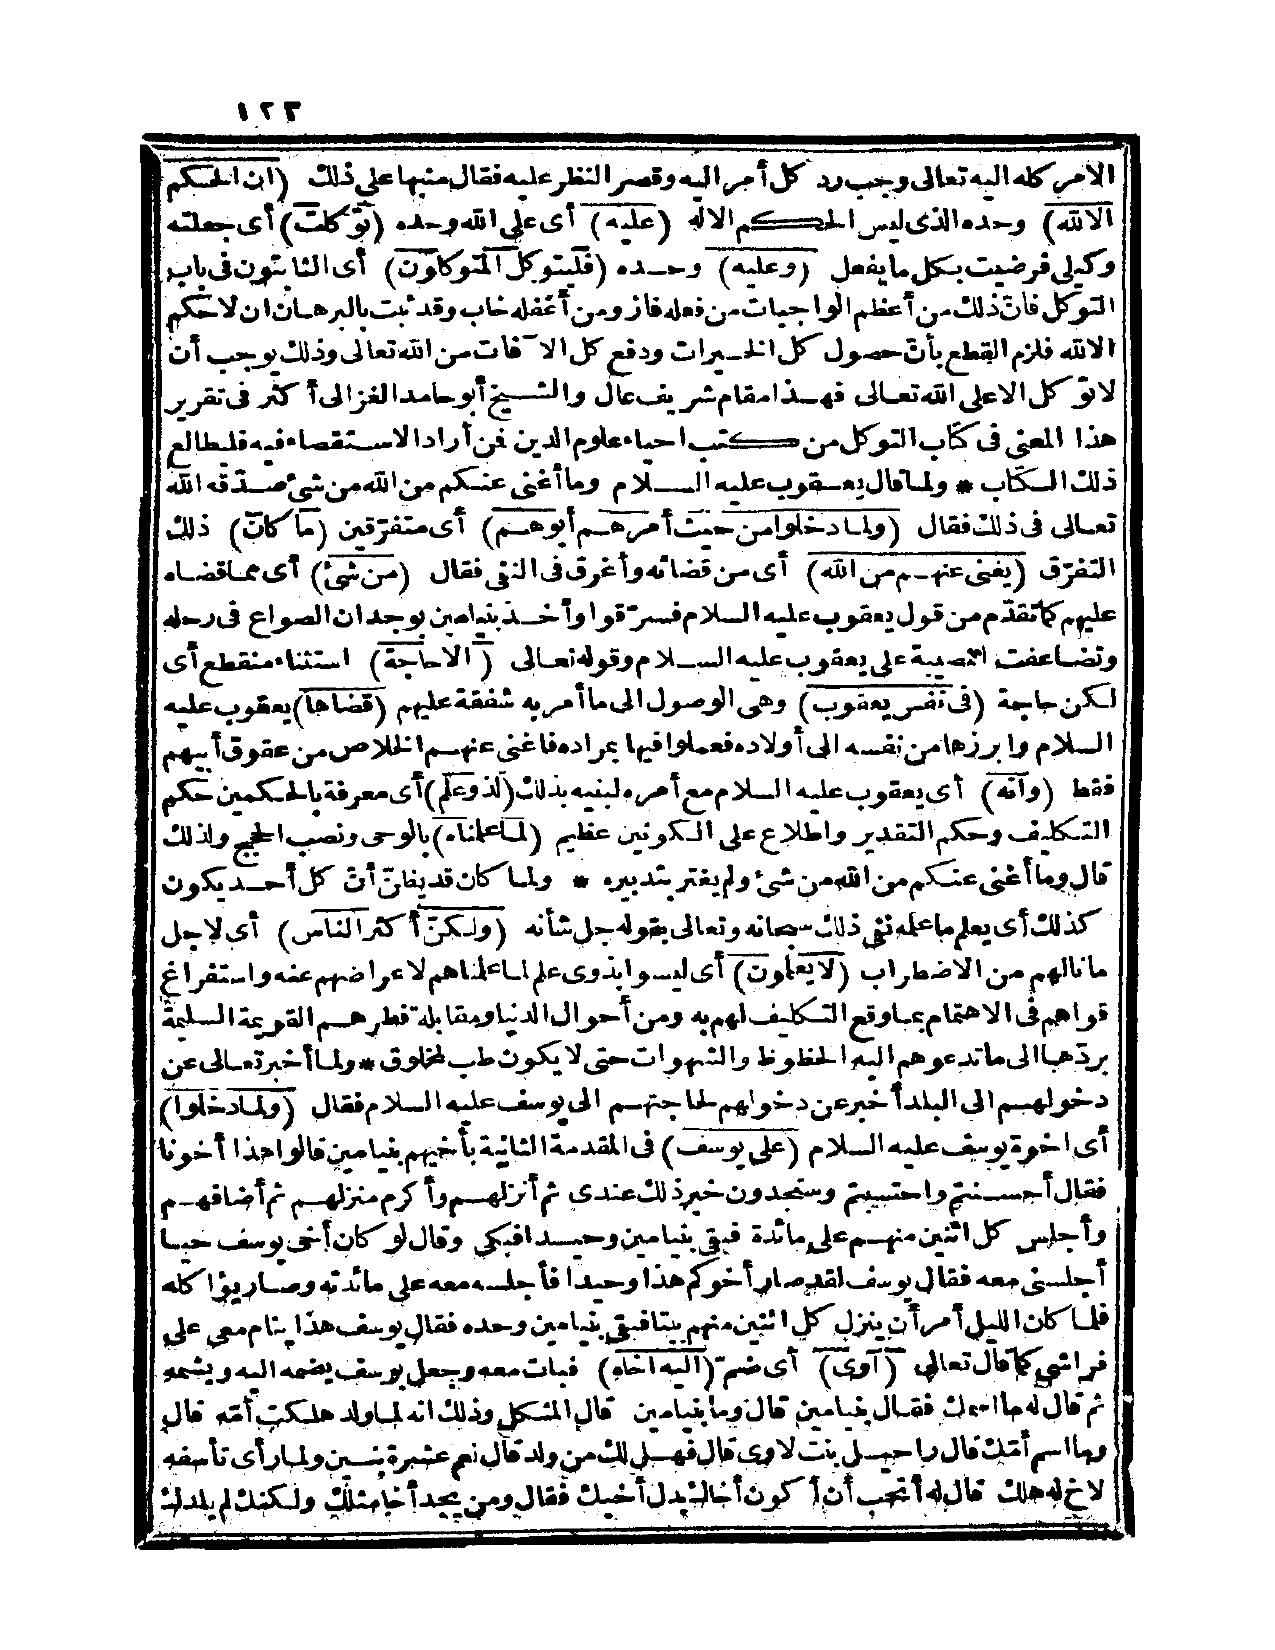 ١٢٣
الامر كله اليه تعالى وجب رد كل أمر اليه وقصر النظر عليه فقال منبها على ذلك (ان الحكم
الالله) وحده الذى ليس الحكم الا له (عليه) أى على الله وحده (توّكلت) أى جعلته
وكيلى فرضيت بكل ما يفعل (وعليه) وحده (فليتوكل المتوكلون) أى الثابتون فى باب
التوكل فانّ ذلك من أعظم الواجبات من فعله فاز ومن أغفله خاب وقد ثبت بالبرهان ان لا حكم
الالله فلزم القطع بأنّ حصول كل الخيرات ودفع كل الآفات من الله تعالى وذلك يوجب أن
لا توّكل الاعلى الله تعالى فهذا مقام شريف عال والشيخ أبو حامد الغزالى أكثر فى تقرير
هذا المعنى فى كتاب التوكل من كتب احياء علوم الدين فن أراد الاستقصاء فيه فليطالع
ذلك الكتاب * ولما قال يعقوب عليه السلام وما أغنى عنكم من الله من شئ صدّقه الله
تعالى فى ذلك فقال (ولما دخلوا من حيث أمرهم أبوهم) أى متفرّقين (ما كان) ذلك
التفرّق (يغنى عنهم من الله) أى من قضائه وأغرق فى النفى فقال (من شئ) أى مما قضاه
عليهم كما تقدّم من قول يعقوب عليه السلام فسرّقوا وأخذ بنيامين بوجدان الصواع فى رحله
وتضاعفت المصيبة على يعقوب عليه السلام وقوله تعالى (الاحاجة) استثناء منقطع أى
لكن حاجة (فى نفس يعقوب) وهى الوصول الى ما أمر به شفقة عليهم (قضاها) يعقوب عليه
السلام وابرزها من نفسه الى أولاده فعملوا فيها بمراده فاغنى عنهم الخلاص من عقوق أبيهم
فقط (وانه) أى يعقوب عليه السلام مع أمره لبنيه بذلك (لذو علم) أى معرفة بالحكمين حكم
التكليف وحكم التقدير واطلاع على الكونين عظيم (لما علمناه) بالوحى ونصب الحجج ولذلك
قال وما أغنى عنكم من الله من شئ ولم يغتر بتدبيره * ولما كان قد يظنّ أنّ كل أحد يكون
كذلك أى يعلم ما علمه نفى ذلك سبحانه وتعالى بقوله جل شأنه (ولكنّ أكثر الناس) أى لاجل
ما نالهم من الاضطراب (لا يعلمون) أى ليسوا بذوى علم لما علمناهم لاعراضهم عنه واستفراغ
قواهم فى الاهتمام بما وقع التكليف لهم به ومن أحوال الدنيا ومقابلة فطرهم القويمة السليمة
بردّها الى ما تدعوهم اليه الحظوظ والشهوات حتى لا يكون طب لمخلوق * ولما أخبر تعالى عن
دخولهم الى البلد أخبر عن دخولهم لحاجتهم الى يوسف عليه السلام فقال (ولما دخلوا)
أى اخوة يوسف عليه السلام (على يوسف) فى المقدمة الثانية بأخيهم بنيامين قالوا هذا أخونا
فقال أحسنتم واحتسبتم وستجدون خير ذلك عندى ثم أنزلهم وأكرم منزلهم ثم أضافهم
وأجلس كل اثنين منهم على مائدة فبقى بنيامين وحيدا فبكى وقال لو كان أخى يوسف حيا
أجلسنى معه فقال يوسف لقد صار أخوكم هذا وحيدا فأجلسه معه على مائدته وصار يؤاكله
فلما كان الليل أمر أن ينزل كل اثنين منهم بيتا فبقى بنيامين وحده فقال يوسف هذا ينام معى على
فراشى كما قال تعالى (آوى) أى ضمّ (اليه اخاه) فبات معه وجعل يوسف يضمه اليه ويشمه
ثم قال له ما اسمك فقال بنيامين قال وما بنيامين قال المشكل وذلك انه لما ولد هلكت أمّه قال
وما اسم أمّك قال راحيل بنت لاوى قال فهل لك من ولد قال نعم عشرة بنين ولما رأى تأسفه
لاخ له هلك قال له أتحب أن أكون أخاك بدل أخيك فقال ومن يجد أخا مثلك ولكنك لم يلدك